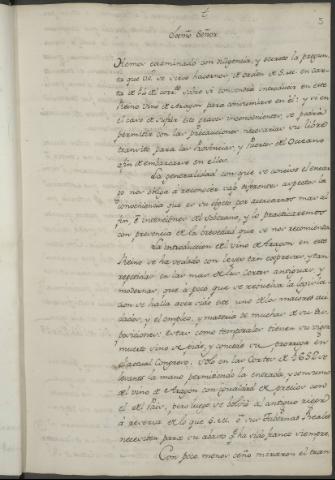 t
3
Señor
Hemos examinado con diligencia, y secreto la pregun
ta que se sirve hacernos, de orden de S. M. en car
ta de 14 de sobre si convendrá introducir en este
Reino vino de Aragon para consumirse en él: y si en
el caso de sufrir este graves inconvenientes, se podrá
permitir con las precauciones necesarias su libre
transito para las Provincias, y Puertos del Oceano
a fin de embarcarse en ellos.
La generalidad con que se concive el encar
go nos obliga á reconocer bajo diferentes aspectos la
conveniencia que es su objeto, por acercarnos mas al
fin, é intenciones del Soberano, y lo practicaremos
con presencia de la brevedad que se nos recomienda
La introduccion del vino de Aragon en este
Reino se ha vedado con leyes tan expresas, y tan
repetidas en las mas de las Cortes antiguas, y
modernas, que á poco que se rebuelva la legisla
cion se halla haver sido este uno de los maiores cui
dados, y el empleo, y materia de muchas de sus dis
posiciones: Estas como temporales tienen su vigor
muerto sino se pide, y concede su proroga en
cada qual Congreso. Solo en las Cortes de 1652 se
levantó la mano permitiendo la entrada, y consumo
del vino de Aragon con igualdad de precios con
el del Pais, pero luego se bolvió al antiguo
á reserva de lo que S. M. ó sus Tabernas Reales
necesiten para su abasto que ha sido franco siempre.
Con poco menos ceño miraron el tran